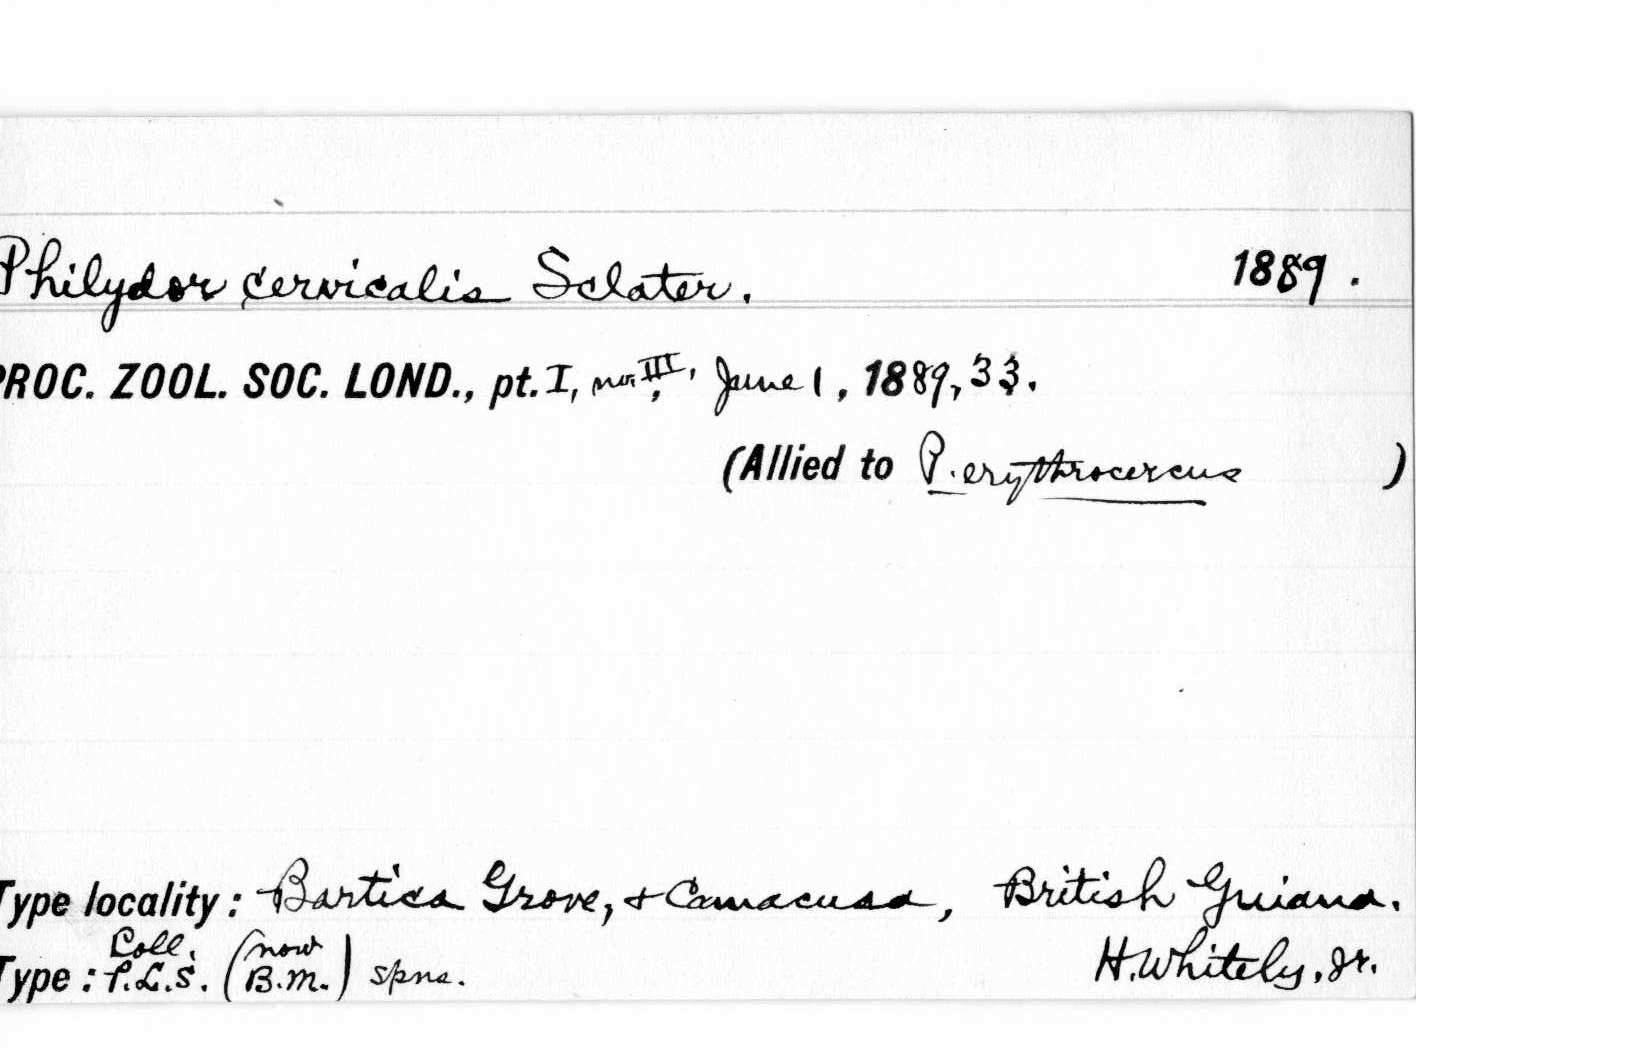 Philydor cervicalis Sclater. 1889.
PROC. ZOOL. SOC. LOND., pt. I, no. III, June 1, 1889, 33.
(Allied to P. erythrocercus )
Type locality: Bartica Grove, & Camacusa, British Guiana.
Coll. (now
Type: P.L.S. B.M.) spns. H. Whitely, Jr.